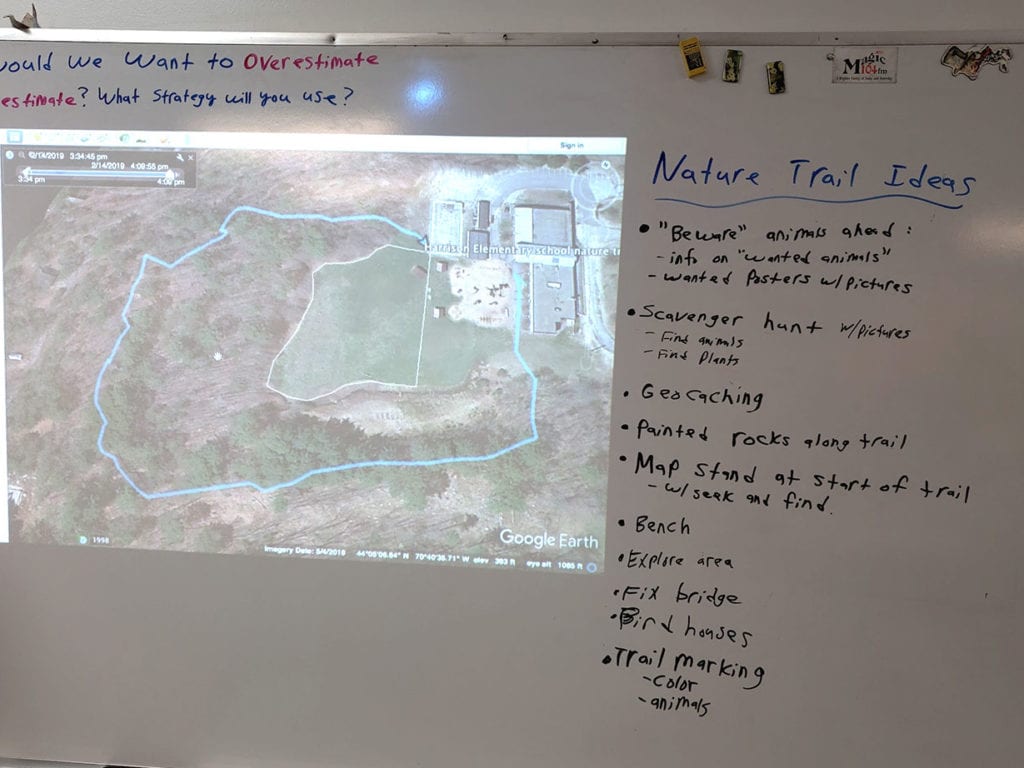 would We Want to Overestimate
estimate? What Strategy will you use?
Sign in
2/14/2019 3:34:45 pm
2/14/2019 4:09:55 pm
3:34 pm
4:09 pm
Harrison Elementary school nature tr
1998
Google Earth
Imagery Date: 5/4/2018 70°40'35.71" W elev 383 ft eye alt 1065 ft
Magic
104fm
Nature Trail Ideas
• "Beware" animals ahead :
- info on "wanted animals"
- wanted Posters w/pictures
• Scavenger hunt w/pictures
- Find animals
- Find Plants
• Geocaching
• Painted rocks along trail
• Map stand at start of trail
- w/ seek and find.
• Bench
• Explore area
• Fix bridge
• Bird houses
• Trail marking
- Color
- animals